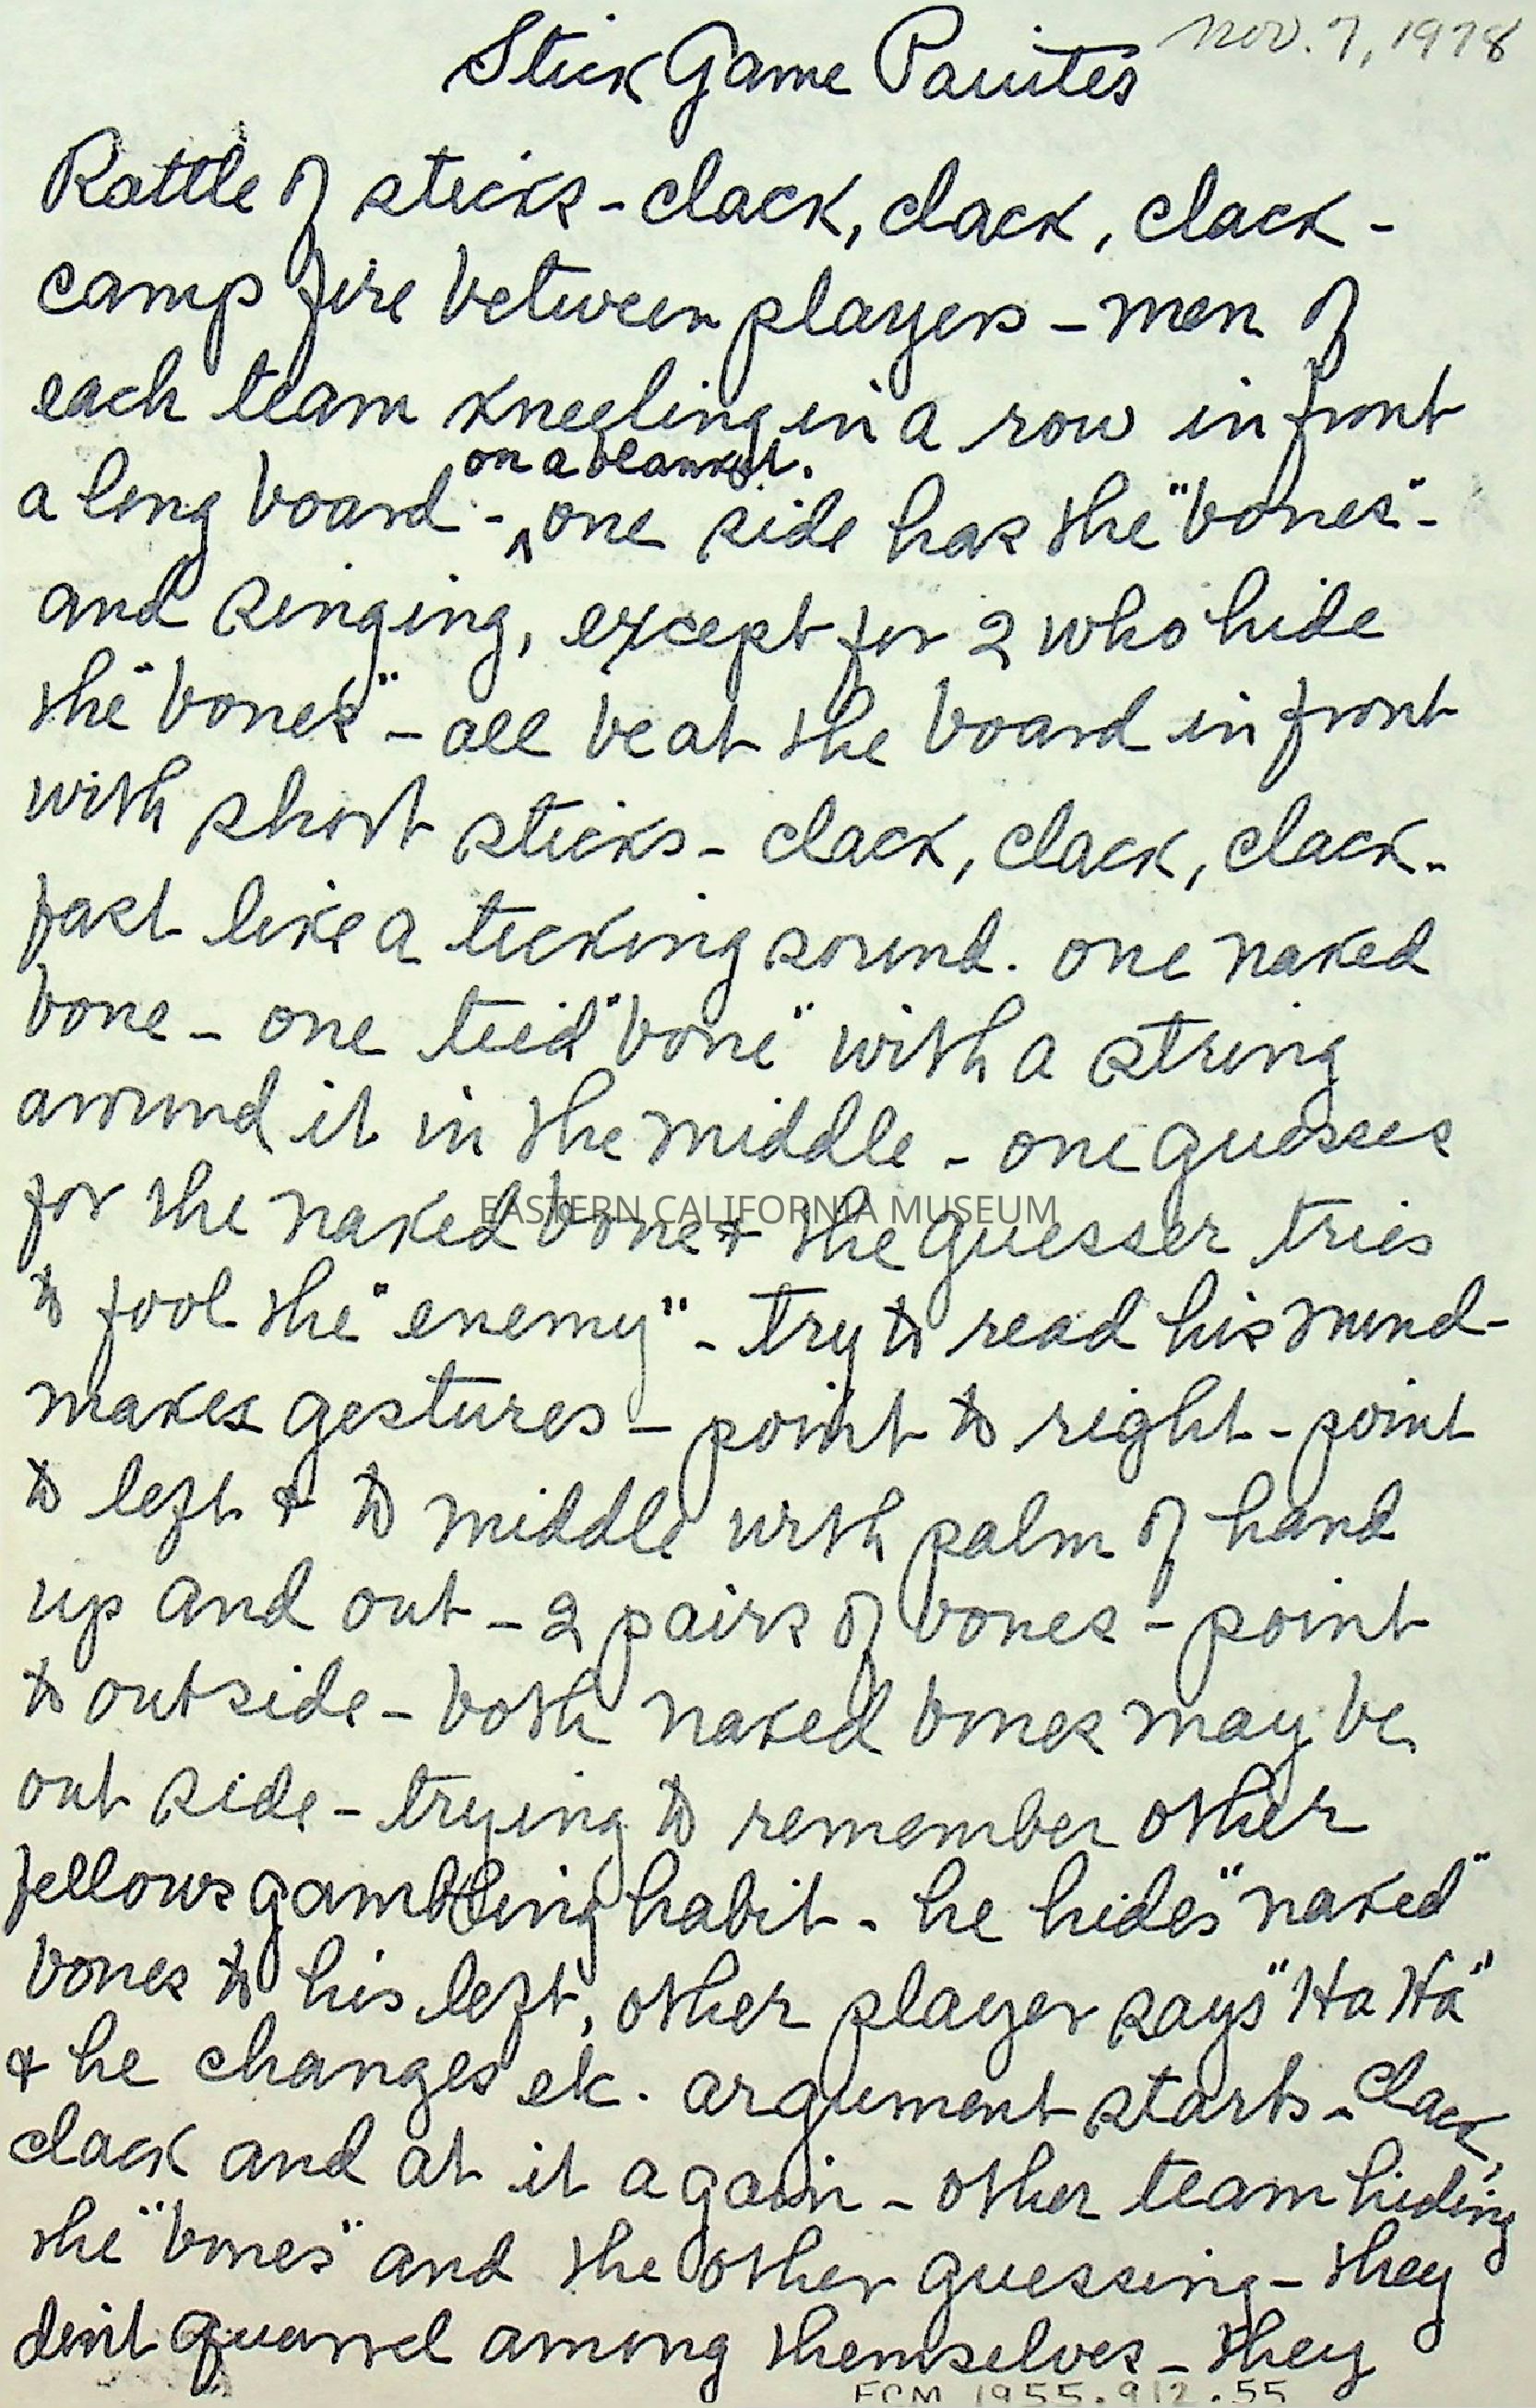 Nov. 7, 1978
Stick Game Paiutes
Rattle of sticks - clack, clack, clack -
camp fire between players - men of
each team kneeling in a row in front
on a blanket.
a long board - ^ one side has the "bones" -
and singing, except for 2 who hide
the "bones" - all beat the board in front
with short sticks - clack, clack, clack -
fast like a ticking sound. one naked
bone - one tied "bone" with a string
around it in the middle - one guesses
for the naked bone & the guesser tries
EASTERN CALIFORNIA MUSEUM
to fool the "enemy" - try to read his mind -
makes gestures - point to right - point
to left & to middle with palm of hand
up and out - 2 pairs of bones - point
to outside - both naked bones may be
out side - trying to remember other
fellows gambling habit - he hides "naked"
bones to his left, other player says "Ha Ha"
& he changes etc. argument starts - clack,
clack and at it again - other team hiding
the "bones" and the other guessing - they
don't quarrel among themselves - they
ECM 1955.912.55